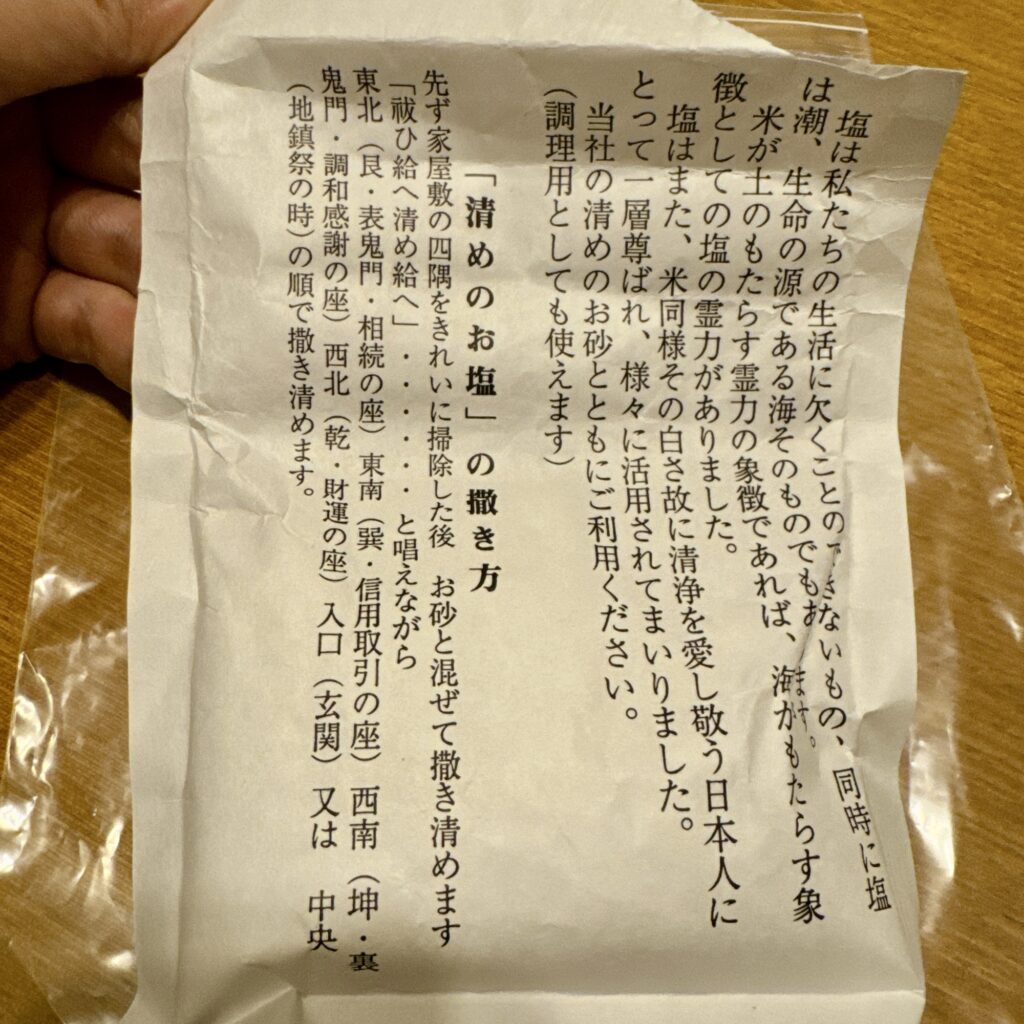 塩は私たちの生活に欠くことのできないもの、同時に塩
は潮、生命の源である海そのものでもあります。
米が土のもたらす霊力の象徴であれば、海がもたらす象
徴としての塩の霊力がありました。
塩はまた、米同様その白さ故に清浄を愛し敬う日本人に
とって一層尊ばれ、様々に活用されてまいりました。
当社の清めのお砂とともにご利用ください。
（調理用としても使えます）
「清めのお塩」の撒き方
先ず家屋敷の四隅をきれいに掃除した後　お砂と混ぜて撒き清めます
「祓ひ給へ清め給へ」・・・・・・と唱えながら
東北（艮・表鬼門・相続の座）東南（巽・信用取引の座）西南（坤・裏
鬼門・調和感謝の座）西北（乾・財運の座）入口（玄関）又は　中央
（地鎮祭の時）の順で撒き清めます。